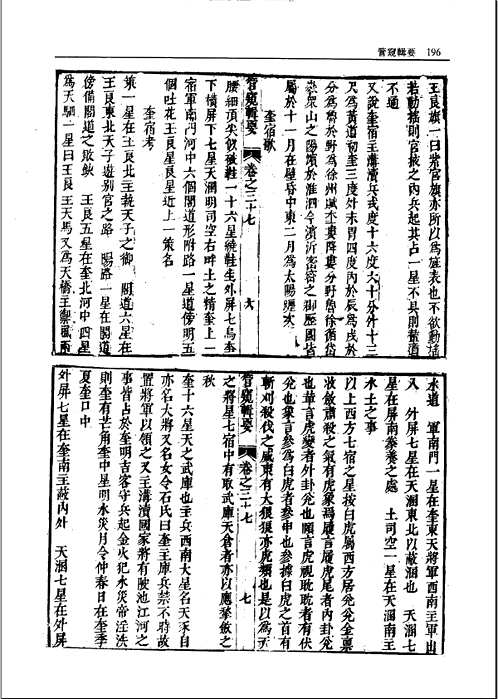 管窺輯要　196
王良旗一曰紫宮旗亦所以為旌表也不欲動搖
若動搖則官掖之內兵起其占一星不具則輦道
不通
又說奎宿主溝瀆兵戎度十六度六十分外十三
又為黃道初奎三度外末胃四度內於辰為戌於
分為魯於野為徐州
屬於十一月在屋昏中東二月為太陽
奎宿歌
管窺輯要　卷之三十七　六
腰細頂尖似破鞋一十六星繞鞋生外屏七烏奎
下橫屏下七星天溷明司空右畔土之精奎上一
宿軍南門河中六個閣道形附路一星道傍明五
個吐花王良星良星近上一策名
奎宿考
策一星在王良北主執天子之御　閣道六星在
王良東北天子遊別宮之路　附路一星在閣道
傍備閣道之敗缺　王良五星在奎北河中四星
為天駟一星曰王良　王天馬又為天橋主禦風雨
水道　軍南門一星在奎東天將軍西南主軍出
入　外屏七星在天溷東北以蔽溷也　天溷七
星在屏南豢養之處　土司空一星在天溷南主
水土之事
以上西方七宿之星按白虎屬西方居兌兌金稟
收斂肅殺之氣有虎象焉履言履虎尾者內卦兌
也革言虎變者外卦兌也頤言虎視眈眈者有伏
兌也象言參為白虎者參中也參據白虎之首有
斬刈殺伐之威東有大狼狼亦虎類也是以為天
管窺輯要　卷之三十七　七
之將星七宿中有取武庫天倉者亦以應摯斂之
秋
奎十六星天之武庫也主兵西南大星名天豕目
亦名大將又名女令石氏曰奎主庫兵禁不時故
置將軍以領之又主溝瀆國家將有陂池江河之
事皆占於奎明吉客守兵起金火犯水災帝淫泆
則奎有芒角奎中星明水災月令仲春日在奎季
夏奎旦中
外屏七星在奎南主蔽內外　天溷七星在外屏